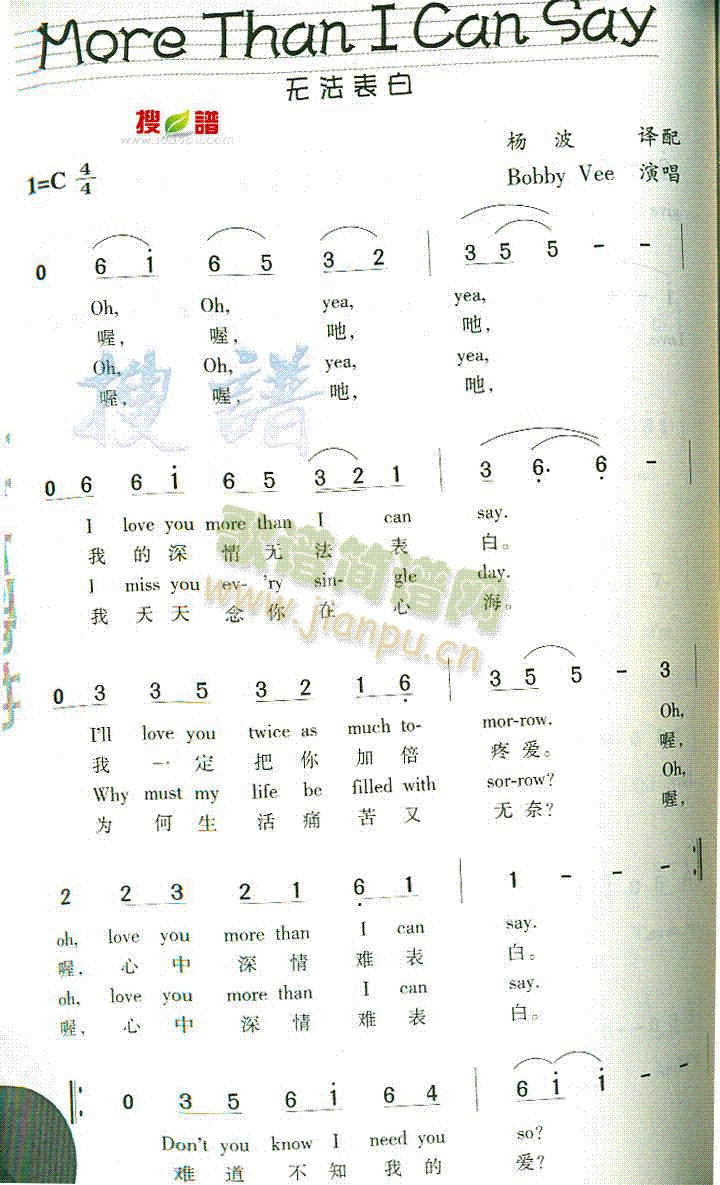 More Than I Can Say
无法表白
搜谱
www.sooopu.com
杨 波 译配
1=C 4/4
Bobby Vee 演唱
0 6 i 6 5 3 2 | 3 5 5 - - |
Oh, Oh, yea, yea,
喔, 喔, 吔, 吔,
Oh, Oh, yea, yea,
喔, 喔, 吔, 吔,
搜谱
0 6 6 i 6 5 3 2 1 | 3 6. 6 - |
I love you more than I can say.
我 的 深 情 无 法 表 白。
I miss you ev- 'ry sin- gle day.
我 天 天 念 你 在 心 海。
歌谱简谱网
www.jianpu.cn
0 3 3 5 3 2 1 6 | 3 5 5 - 3 |
I'll love you twice as much to- mor-row. Oh,
我 一 定 把 你 加 倍 疼 爱。 喔,
Why must my life be filled with sor-row? Oh,
为 何 生 活 痛 苦 又 无 奈? 喔,
2 2 3 2 1 6 1 | 1 - - - :|
oh, love you more than I can say.
喔, 心 中 深 情 难 表 白。
oh, love you more than I can say.
喔, 心 中 深 情 难 表 白。
|: 0 3 5 6 i 6 4 | 6 i i - - |
Don't you know I need you so?
难 道 不 知 我 的 爱?